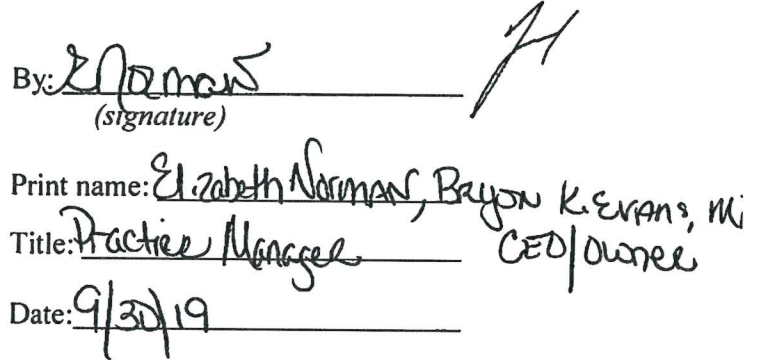 By: ENorman
(signature)
Print name: Elizabeth Norman, Bryon K. Evans, M
Title: Practice Manager CEO/Owner
Date: 9/30/19